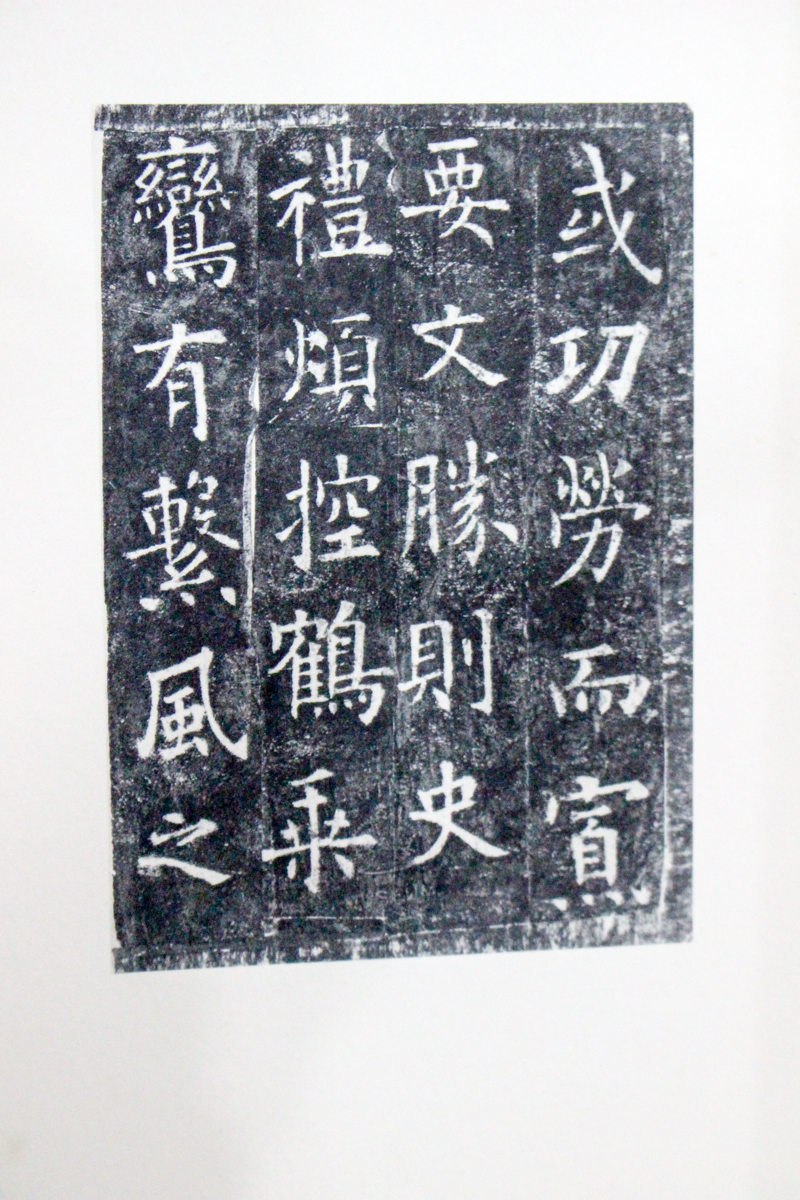 或功勞而寡
要文勝則史
禮煩控鶴乘
鸞有繫風之